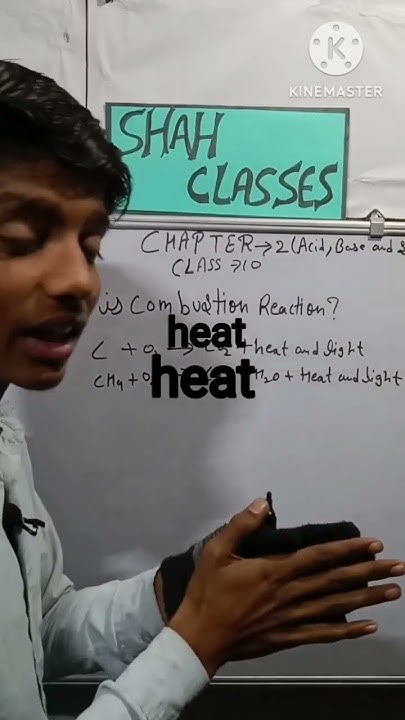 K
KINEMASTER
SHAH
CLASSES
CHAPTER → 2 (Acid, Base and
CLASS → 10
is Combustion Reaction?
C + O → + heat and light
heat
CH4 + O H2O + Heat and light
heat